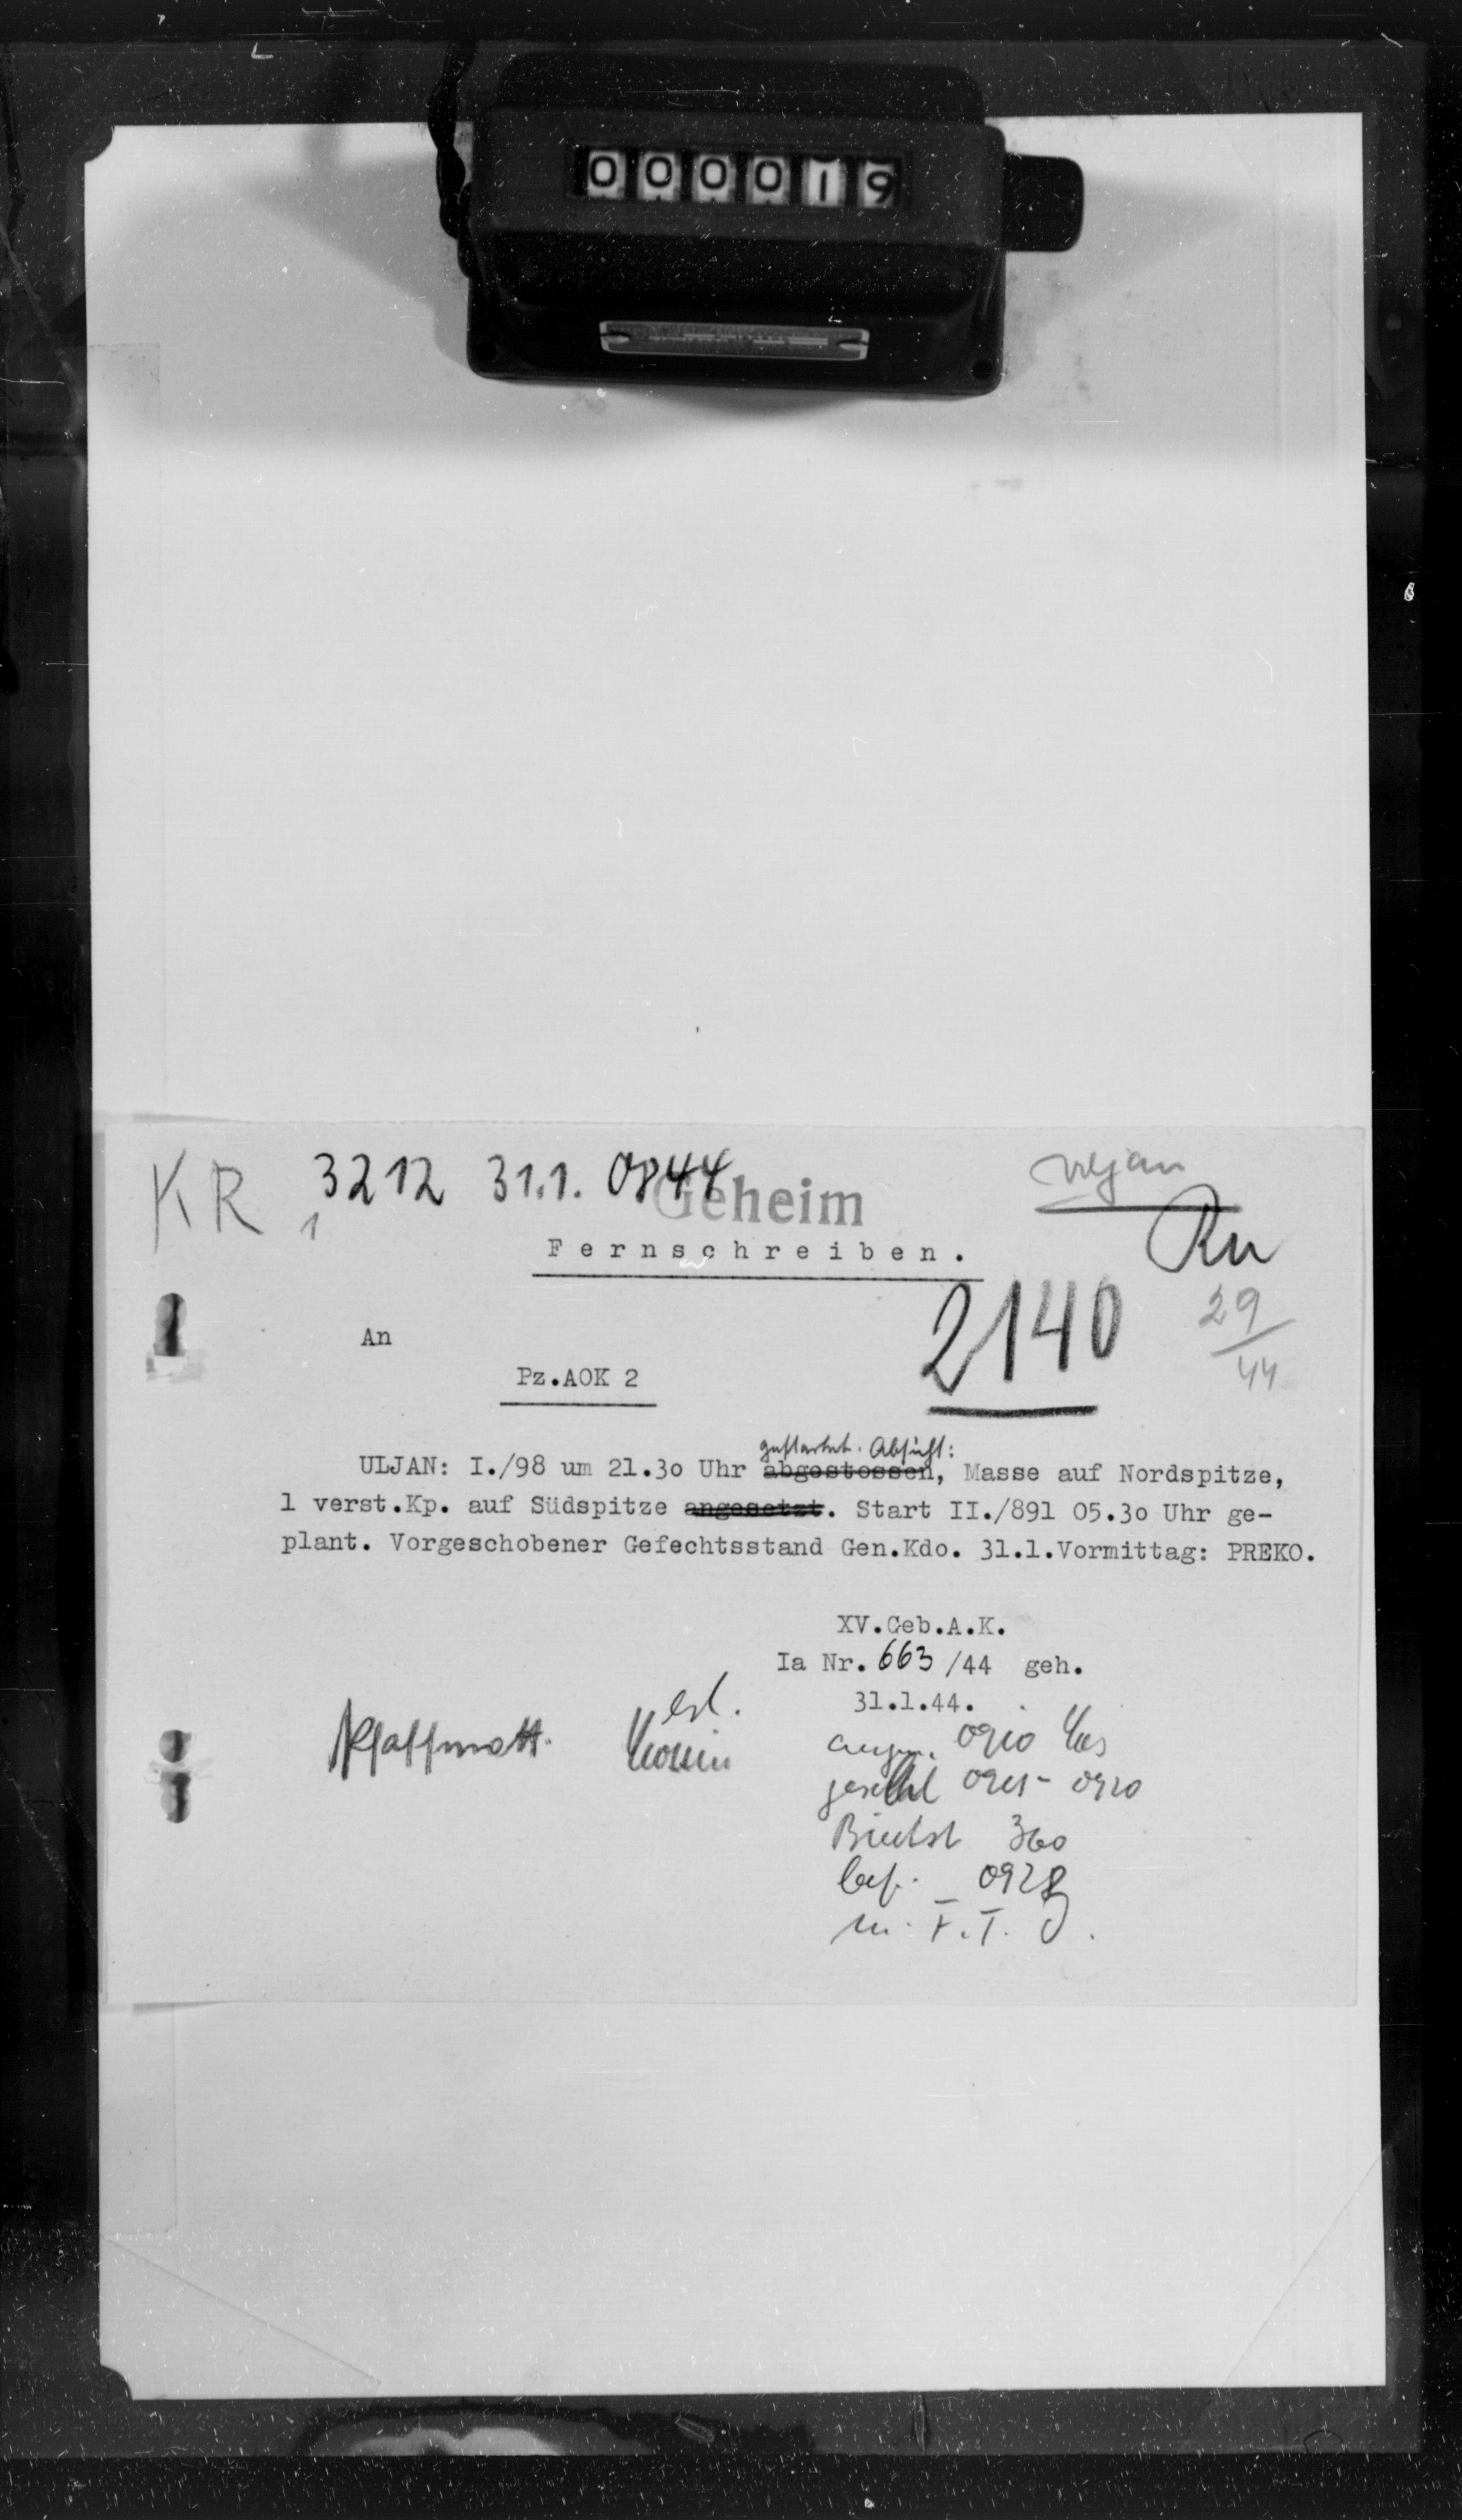 000019
KR 3212 31.1. 0844
Geheim
Uljan
Fernschreiben.
Ru
2140
29/44
An
Pz.AOK 2
gestartet. Absicht:
ULJAN: I./98 um 21.3o Uhr abgestossen, Masse auf Nordspitze,
1 verst.Kp. auf Südspitze angesetzt. Start II./891 05.3o Uhr ge-
plant. Vorgeschobener Gefechtsstand Gen.Kdo. 31.1.Vormittag: PREKO.
XV.Geb.A.K.
Ia Nr. 663/44 geh.
31.1.44.
erl.
0910
0920
360
bef. 0928
F.T.